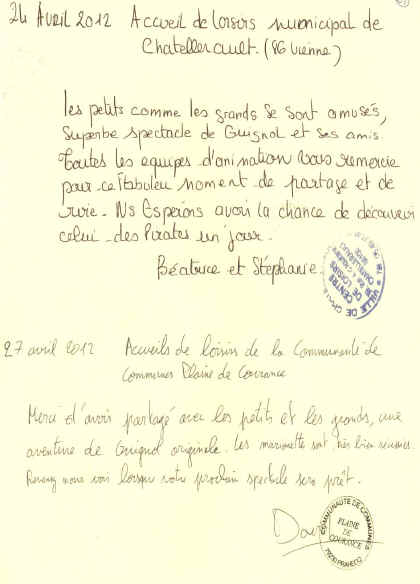 24 Avril 2012 Accueil de loisirs municipal de
Chatellerault. (86 Vienne)
les petits comme les grands se sont amusés,
superbe spectacle de Guignol et ses amis.
Toutes les équipes d'animation vous remercie
pour ce fabuleu moment de partage et de
rire. Ns Espérons avoir la chance de découvrir
celui des Pirates un jour.
Béatrice et Stéphanie.
VILLE DE
CENTRES
DE LOISIRS
27 avril 2012 Accueils de loisirs de la Communauté de
Communes Plaine de Courance
Merci d'avoir partagé avec les petits et les grands, une
aventure de Guignol originale. Les marionette sont très bien
Revenez nous voir lorsque votre prochain spectacle sera prêt.
COMMUNAUTE DE COMMUNES
PLAINE
DE
COURANCE
79230 PRAHECQ